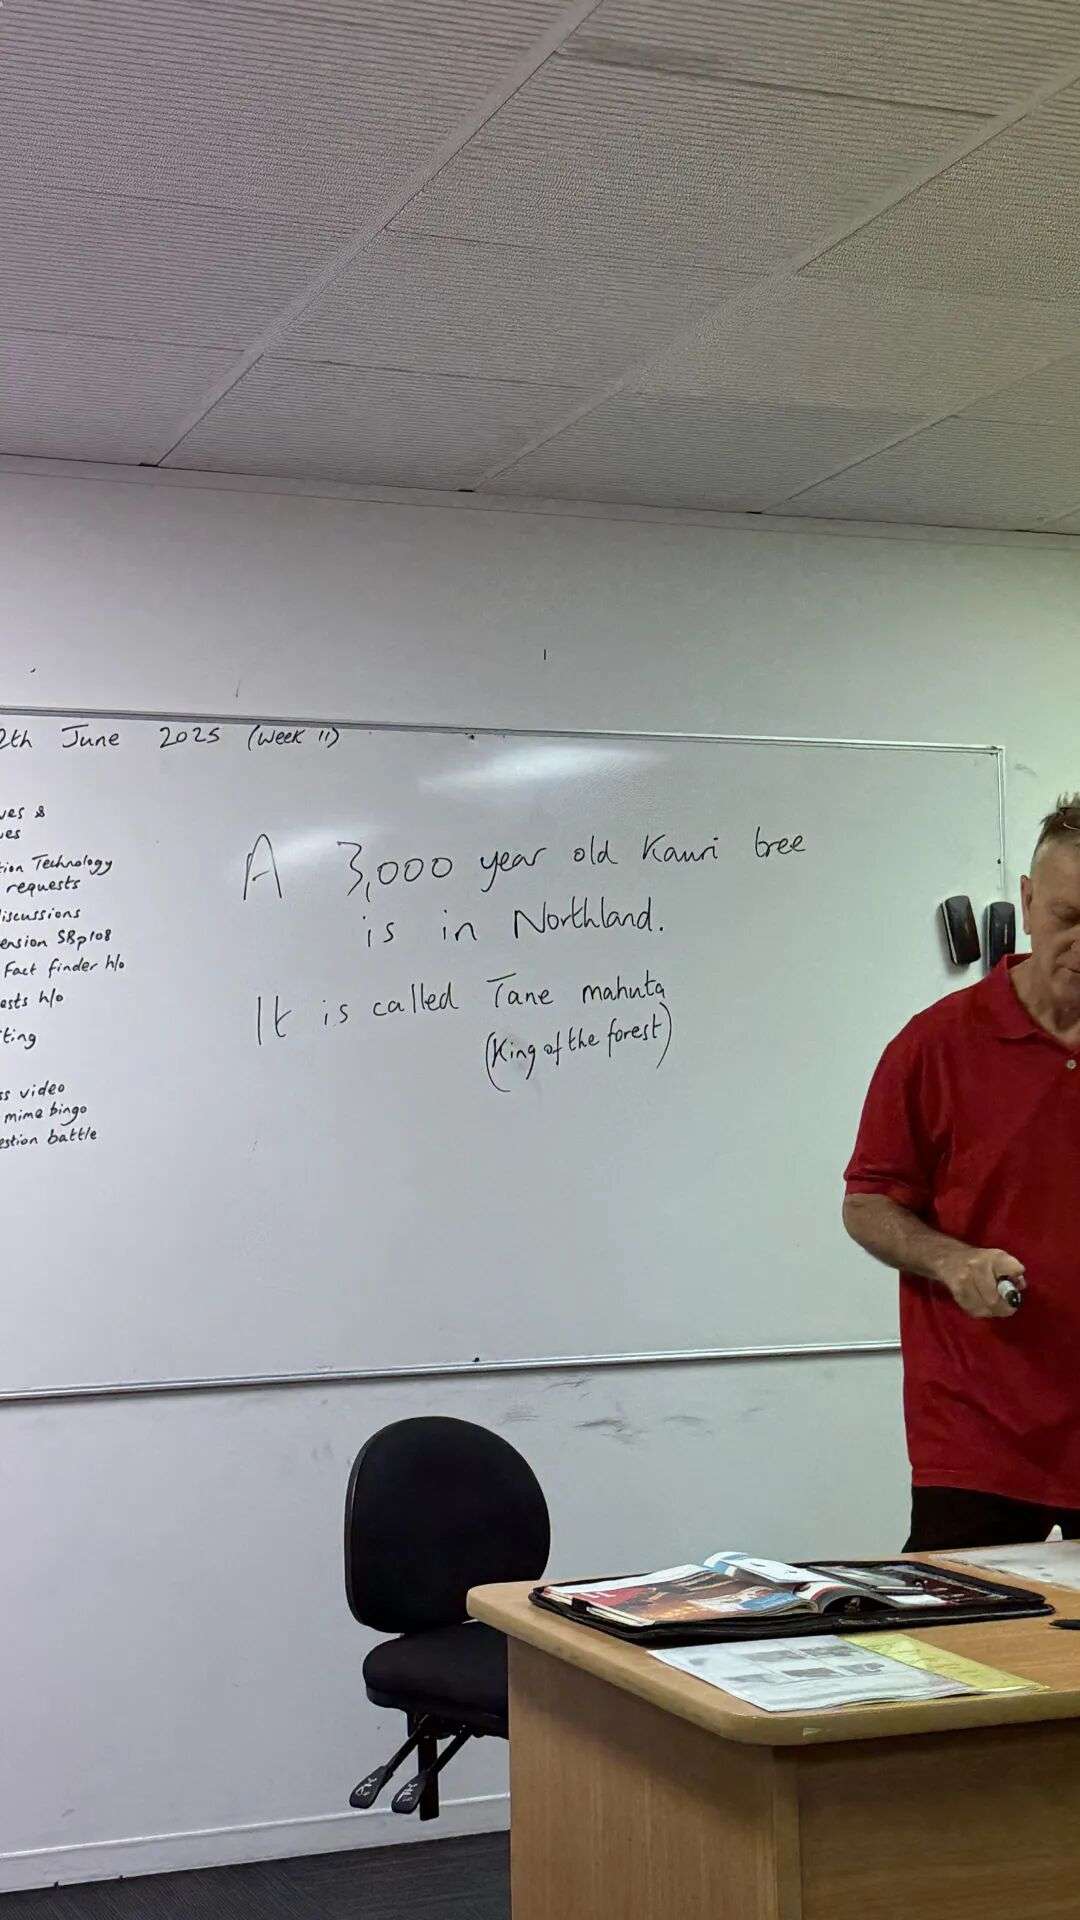 2th June 2025 (Week 11)
ves &
ves
tion Technology
requests
discussions
ension SBp108
Fact finder h/o
ests h/o
ting
ss video
mime bingo
estion battle
A 3,000 year old Kauri tree
is in Northland.
It is called Tane mahuta
(King of the forest)